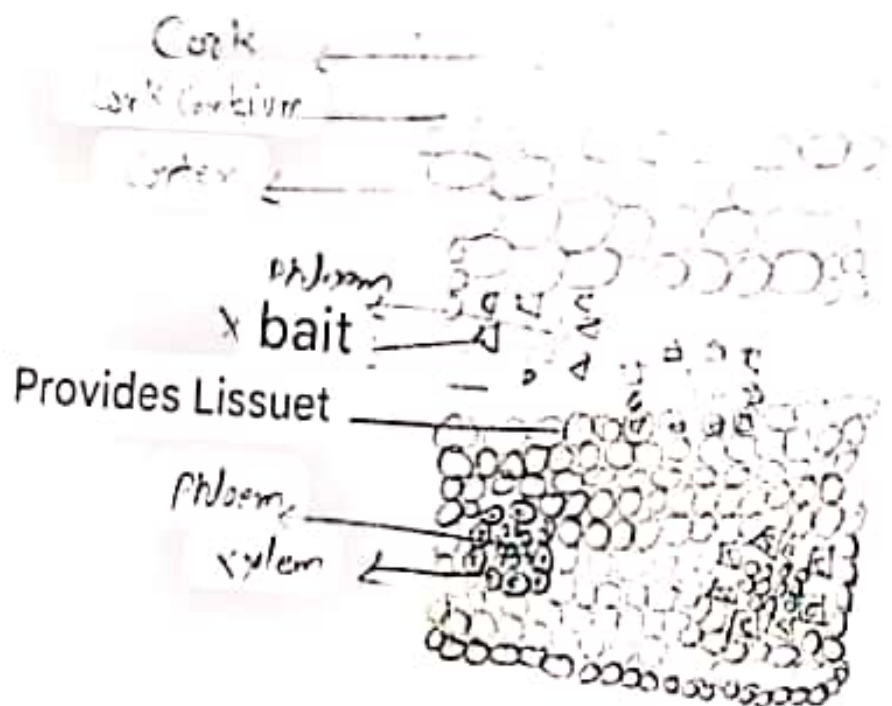 Cork
Cork Cambium
Cortex
Phloem
x bait
Provides Lissuet
Phloem
xylem